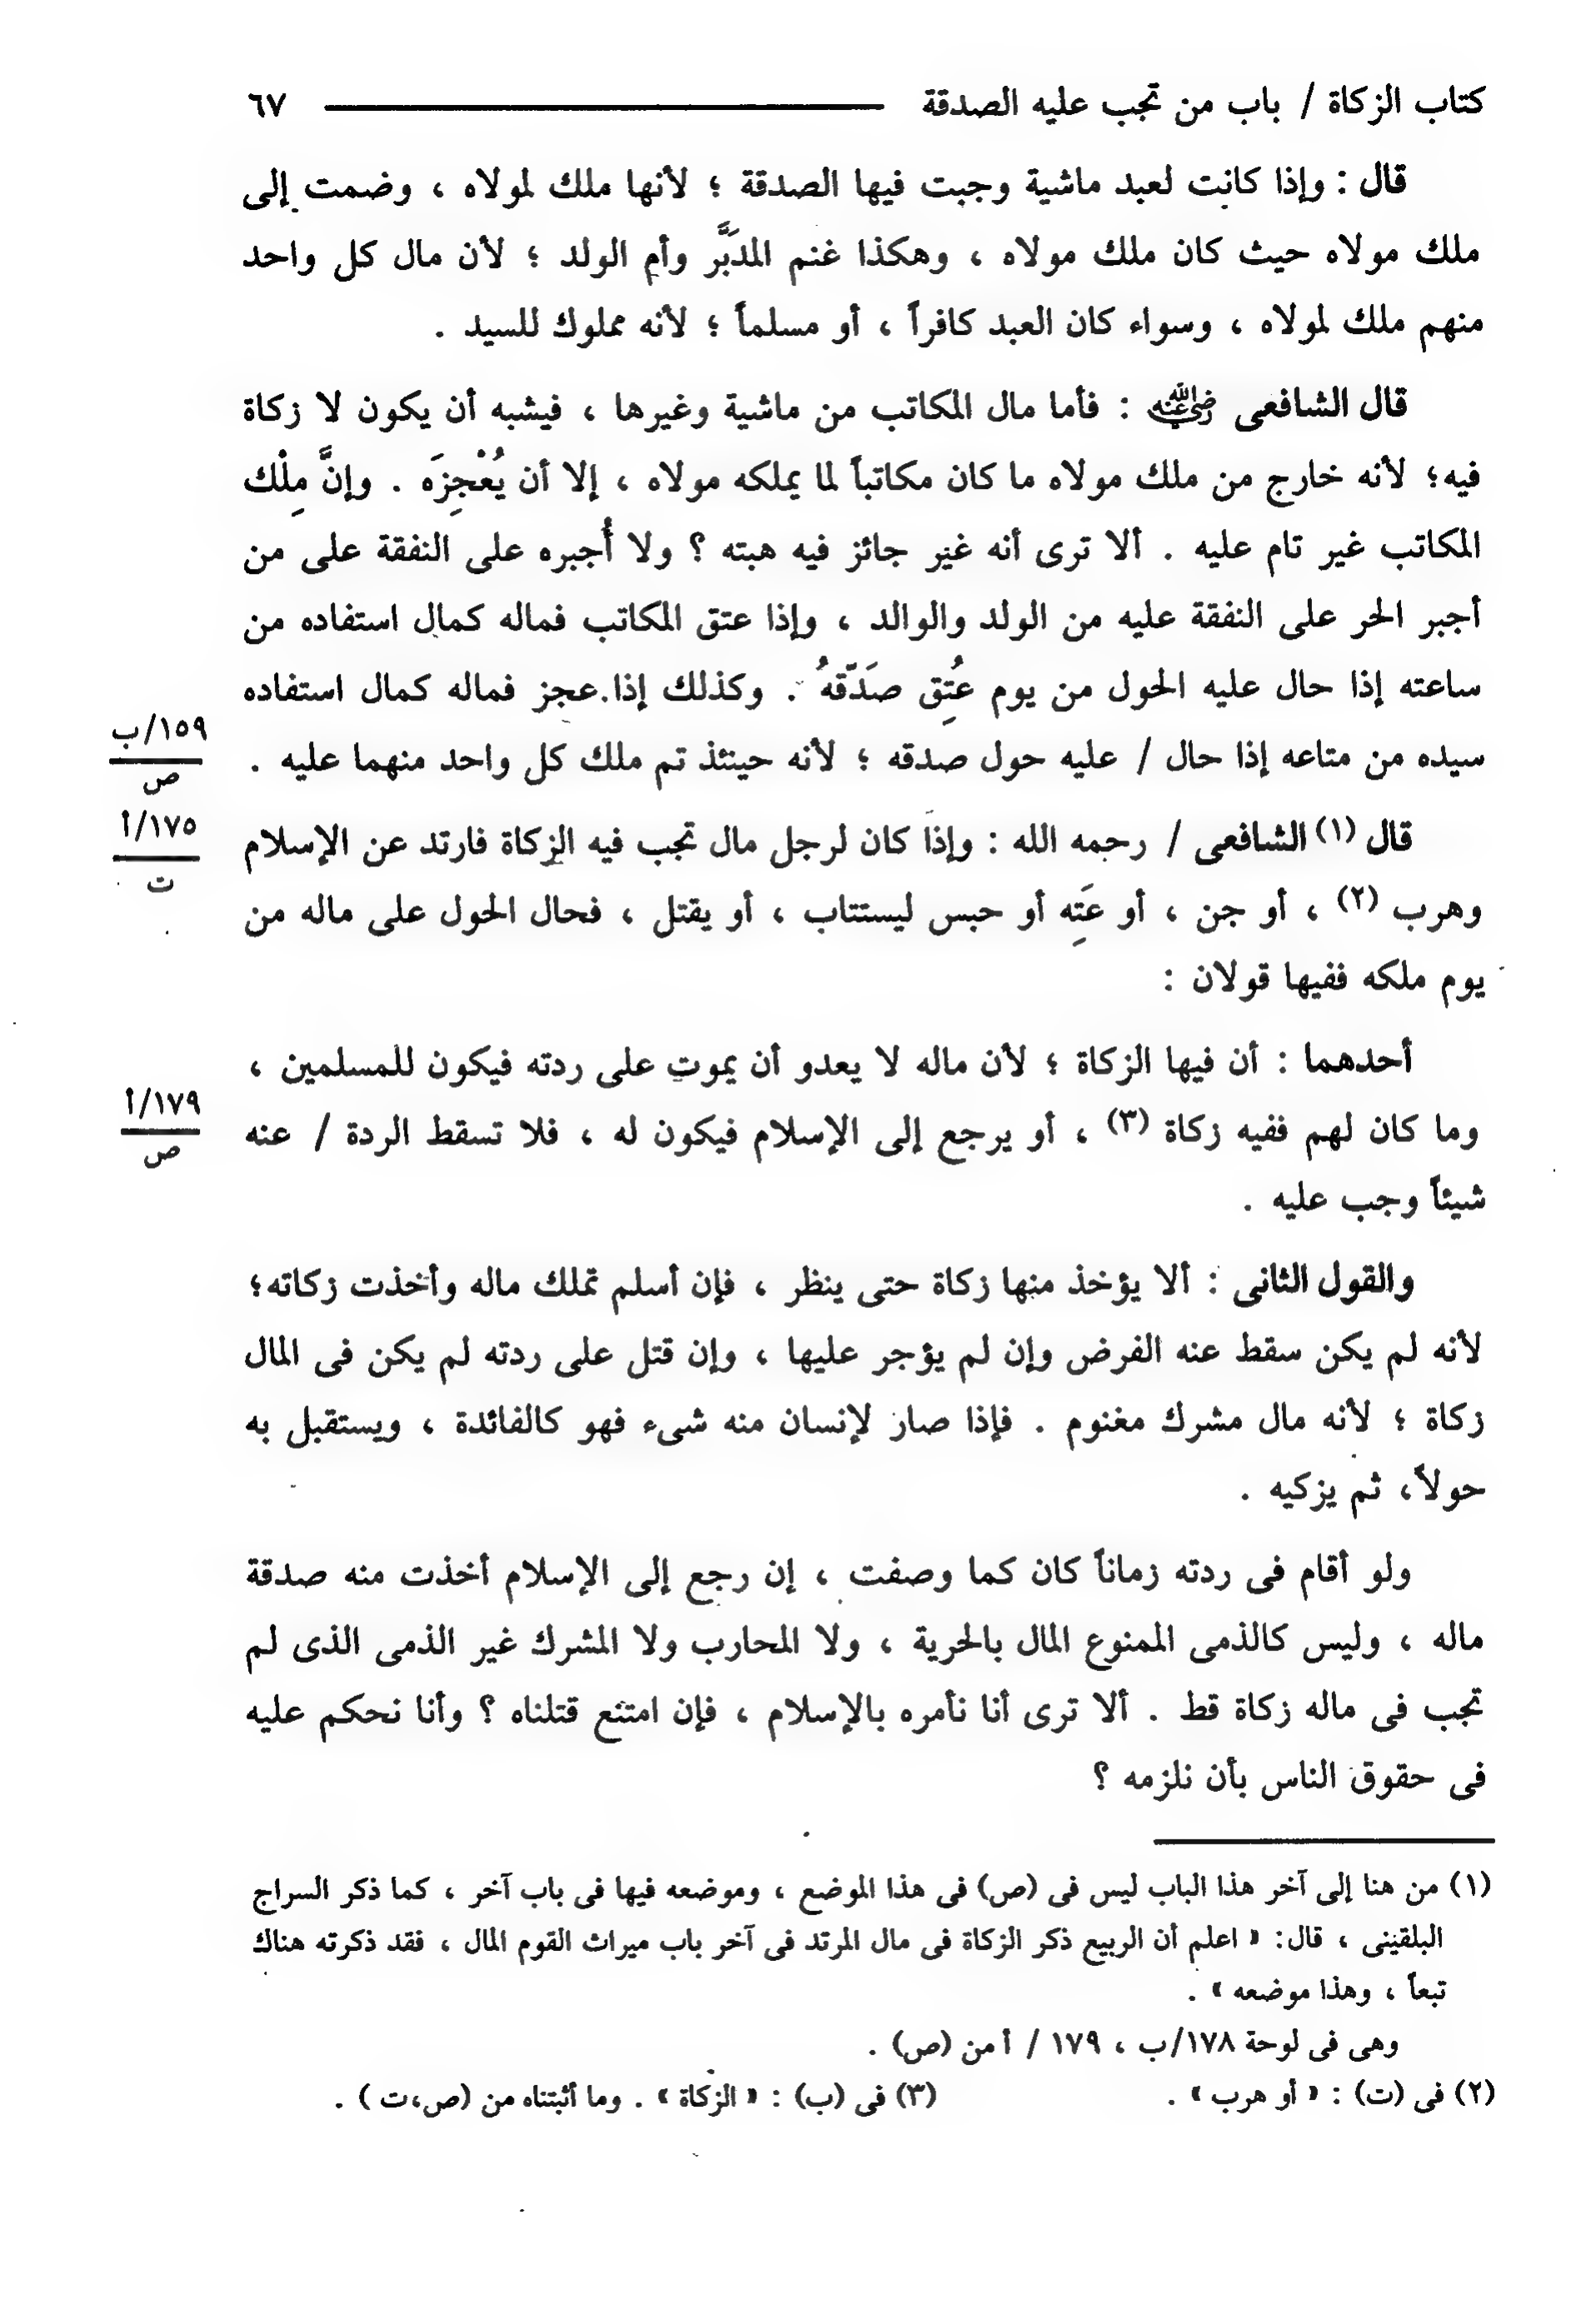 كتاب الزكاة / باب من تجب عليه الصدقة ٦٧
قال : وإذا كانت لعبد ماشية وجبت فيها الصدقة ؛ لأنها ملك لمولاه ، وضمت إلى
ملك مولاه حيث كان ملك مولاه ، وهكذا غنم المدَبَّر وأم الولد ؛ لأن مال كل واحد
منهم ملك لمولاه ، وسواء كان العبد كافراً ، أو مسلماً ؛ لأنه مملوك للسيد .
قال الشافعى رضي الله عنه : فأما مال المكاتب من ماشية وغيرها ، فيشبه أن يكون لا زكاة
فيه؛ لأنه خارج من ملك مولاه ما كان مكاتباً لما يملكه مولاه ، إلا أن يُعْجِزَه . وإنَّ مِلْك
المكاتب غير تام عليه . ألا ترى أنه غير جائز فيه هبته ؟ ولا أُجبره على النفقة على من
أجبر الحر على النفقة عليه من الولد والوالد ، وإذا عتق المكاتب فماله كمال استفاده من
ساعته إذا حال عليه الحول من يوم عُتِق صَدّقهُ . وكذلك إذا عجز فماله كمال استفاده
سيده من متاعه إذا حال / عليه حول صدقه ؛ لأنه حينئذ تم ملك كل واحد منهما عليه .
١٥٩/ب
ص
قال (١) الشافعى / رحمه الله : وإذا كان لرجل مال تجب فيه الزكاة فارتد عن الإسلام
١٧٥/أ
ت
وهرب (٢) ، أو جن ، أو عَتِه أو حبس ليستتاب ، أو يقتل ، فحال الحول على ماله من
يوم ملكه ففيها قولان :
أحدهما : أن فيها الزكاة ؛ لأن ماله لا يعدو أن يموت على ردته فيكون للمسلمين ،
وما كان لهم ففيه زكاة (٣) ، أو يرجع إلى الإسلام فيكون له ، فلا تسقط الردة / عنه
١٧٩/أ
ص
شيئاً وجب عليه .
والقول الثانى : ألا يؤخذ منها زكاة حتى ينظر ، فإن أسلم تملك ماله وأخذت زكاته؛
لأنه لم يكن سقط عنه الفرض وإن لم يؤجر عليها ، وإن قتل على ردته لم يكن فى المال
زكاة ؛ لأنه مال مشرك مغنوم . فإذا صار لإنسان منه شىء فهو كالفائدة ، ويستقبل به
حولاً، ثم يزكيه .
ولو أقام فى ردته زماناً كان كما وصفت ، إن رجع إلى الإسلام أخذت منه صدقة
ماله ، وليس كالذمى الممنوع المال بالحرية ، ولا المحارب ولا المشرك غير الذمى الذى لم
تجب فى ماله زكاة قط . ألا ترى أنا نأمره بالإسلام ، فإن امتنع قتلناه ؟ وأنا نحكم عليه
فى حقوق الناس بأن نلزمه ؟
(١) من هنا إلى آخر هذا الباب ليس فى (ص) فى هذا الموضع ، وموضعه فيها فى باب آخر ، كما ذكر السراج
البلقينى ، قال: « اعلم أن الربيع ذكر الزكاة فى مال المرتد فى آخر باب ميراث القوم المال ، فقد ذكرته هناك
تبعاً ، وهذا موضعه » .
وهى فى لوحة ١٧٨/ب ، ١٧٩ / أ من (ص) .
(٢) فى (ت) : « أو هرب » .
(٣) فى (ب) : « الزكاة » . وما أثبتناه من (ص،ت ) .